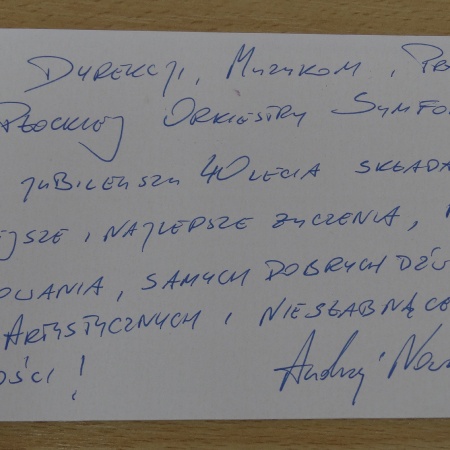 DYREKCJI, MUZYKOM, 
PŁOCKIEJ ORKIESTRY SYMFO
JUBILEUSZU 40LECIA SKŁADA
JSZE I NAJLEPSZE ŻYCZENIA,
OWANIA, SAMYCH DOBRYCH DŹW
ARTYSTYCZNYCH I NIESŁABNĄCE
OŚCI!
Andrzej